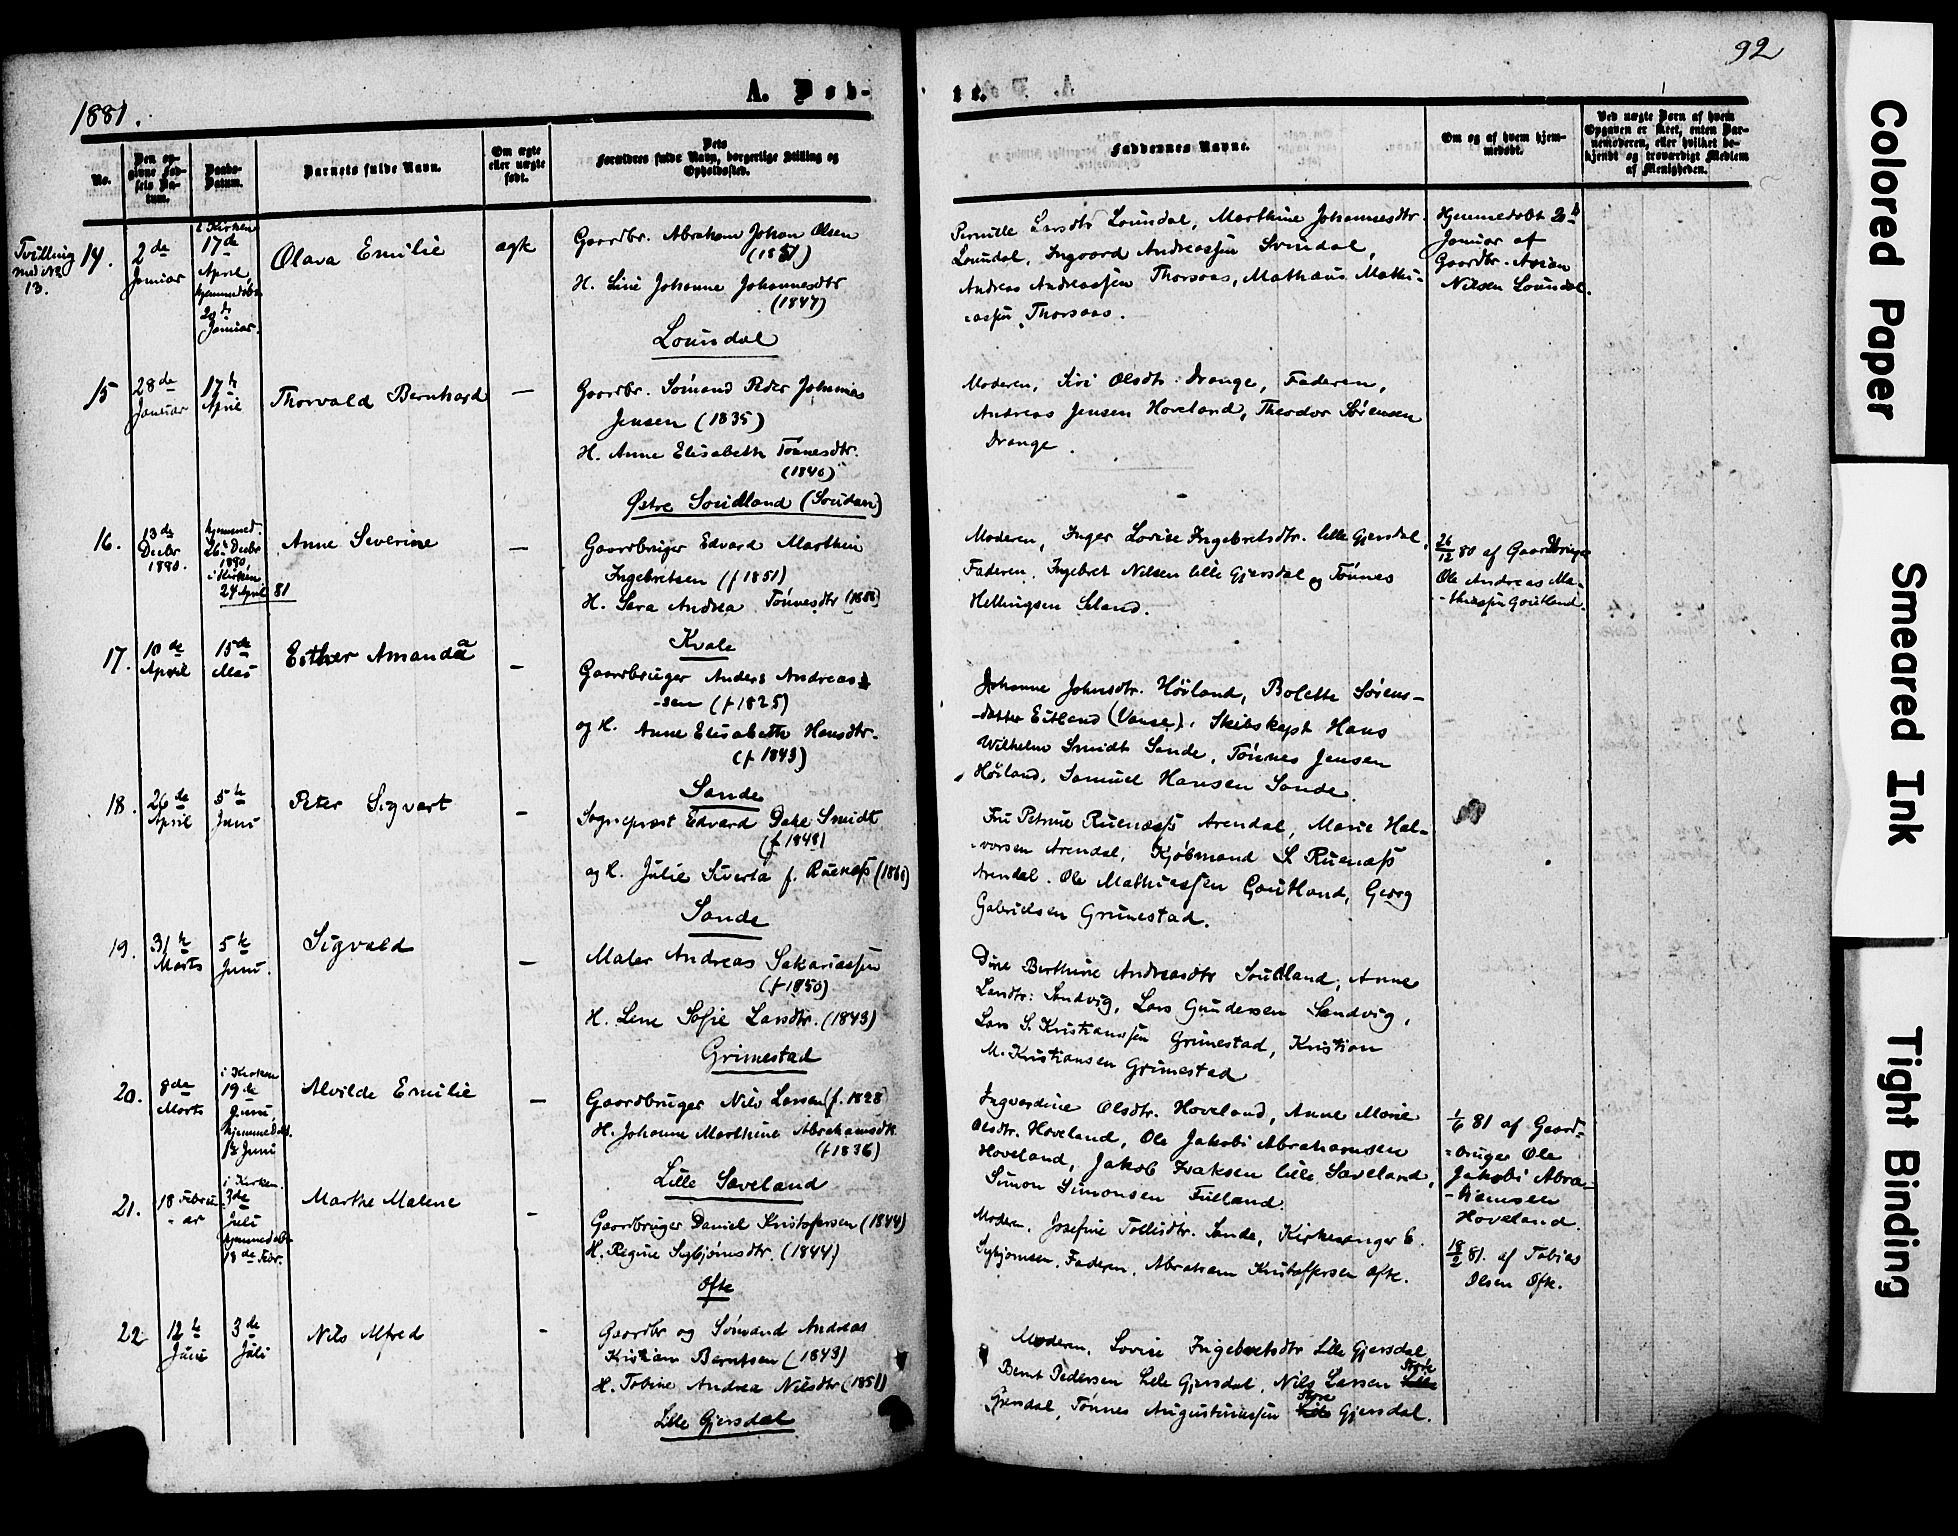 92
1881.
A. Fød-
te.
No.
Den op-
givne Fød-
sels Da-
tum.
Daabs-
Datum.
Barnets fulde Navn.
Om ægte
eller uægte
født.
Dets
Forældres fulde Navn, borgerlige Stilling og
Opholdssted.
Faddernes Navne.
Om og af hvem hjem-
medøbt.
Ved uægte Børn af hvem
Opgaven er skeet, enten Bar-
nemoderen, eller hvilket be-
kjendt og troværdigt Medlem
af Menigheden.
Tvilling
med No
13.
14.
2de
Januar
i Kirken
17de
April,
hjemmedøbt
20de
Januar.
Olava Emilie
ægte
Gaardbr. Abraham Johan Olsen
(1851)
H. Line Johanne Johannesdtr
(1847)
Loundal
Pernille Larsdtr Loundal, Marthine Johannesdtr.
Loundal, Ingvard Andreassen Svindal,
Andreas Andreassen Thorsaas, Mathæus Mathi-
-assen Thorsaas.
Hjemmedøbt 20de
Januar af
Gaardbr. Asian
Nilsen Loundal.
15
28de
Januar
17de
April
Thorvald Bernhard
—
Gaardbr. Sømand Peder Johannes
Jensen (1835)
H. Anne Elisabeth Tønnesdtr.
(1840)
Østre Soudland (Soudan)
Moderen, Siri Olsdtr. Drange, Faderen,
Andreas Jensen Hoveland, Theodor Sørensen
Drange.
16.
13de
Decbr
1880.
hjemmed.
26de Decbr
1880,
i Kirken
24 April 81
Anne Severine
—
Gaardbruger Edvard Marthin
Ingebretsen (f 1851)
H. Sara Andrea Tønnesdtr
Kvale
Moderen, Inger Lovise Ingebretsdtr. lille Gjersdal,
Faderen, Ingebret Nilsen lille Gjersdal og Tønnes
Helliugsen Seland.
26/12 80 af Gaardbruger
Ole Andreas Ma-
-thiassen Goutland.
17.
10de
April
15de
Mai
Esther Amanda
—
Gaardbruger Anders Andreas-
-sen (f 1825)
og H. Anne Elisabeth Hansdtr.
(f 1843)
Sande
Johanne Johnsdtr. Høiland, Bolette Sørens-
-datter Eitland (Vanse). Skibskapt Hans
Wilhelm Smidt Sande, Tønnes Jensen
Høiland, Samuel Hansen Sande.
18.
26de
April
5te
Juni
Peter Sigvart
—
Sogneprest Edvard Dahl Smidt
(f 1848)
og H. Julie Siverta f. Ruenæss
Sande
Fru Petrine Ruenæss Arendal, Marie Hal-
-vorsen Arendal, Kjøbmand S. Ruenæss
Arendal. Ole Mathiassen Goutland, Georg
Gabrielsen Grimestad.
19.
31te
Marts
5te
Juni.
Sigvald
—
Maler Andreas Sakariassen
(f 1850)
H. Lene Sofie Larsdtr. (1843)
Grimestad
Dine Berthine Andreasdtr Soudland, Anne
Larsdtr. Sandvig, Lars Gundersen Sandvig,
Lars S. Kristianssen Grimestad, Kristian
M. Kristiansen Grimestad
20.
8de
Marts
i Kirken
19de
Juni,
hjemmedøbt.
1ste Juni
Alvilde Emilie
—
Gaardbruger Nils Larsen (f. 1828
H. Johanne Marthine Abrahamsdtr.
(f 1836)
Lille Saveland
Ingvardine Olsdtr. Hoveland, Anne Marie
Olsdtr. Hoveland, Ole Jakobi Abrahamsen
Hoveland, Jakob Isaksen lille Saveland,
Simon Simonsen Fulland.
1/6 81 af Gaard-
-bruger Ole
Jakobi Abra-
-hamsen
Hoveland.
21.
18 Febru-
-ar
i Kirken.
3de
Juli
hjemmedøbt
18de Febr.
Marthe Malene
-
Gaardbruger Daniel Kristofersen (1844)
H. Regine Sigbjørnsdtr. (1844)
Ofte
Moderen, Josefine Tollisdtr. Sande, Kirkesanger C.
Sigbjørnsen, Faderen, Abraham Kristoffersen Ofte.
18/2 81. af Tobias
Olsen Ofte.
22
12te
Juni
3de
Juli
Nils Alfred
-
Gaardbr og Sømand Andreas
Kristian Berntsen (1843)
H. Tobine Andrea Nilsdtr (1851)
Lille Gjersdal
Moderen, Lovise Ingebretsdtr Lille Gjersdal
Bernt Pedersen Lille Gjersdal, Nils Larsen Store
Gjersdal, Tønnes Augustinussen Store Gjersdal.
Colored Paper
Smeared Ink
Tight Binding